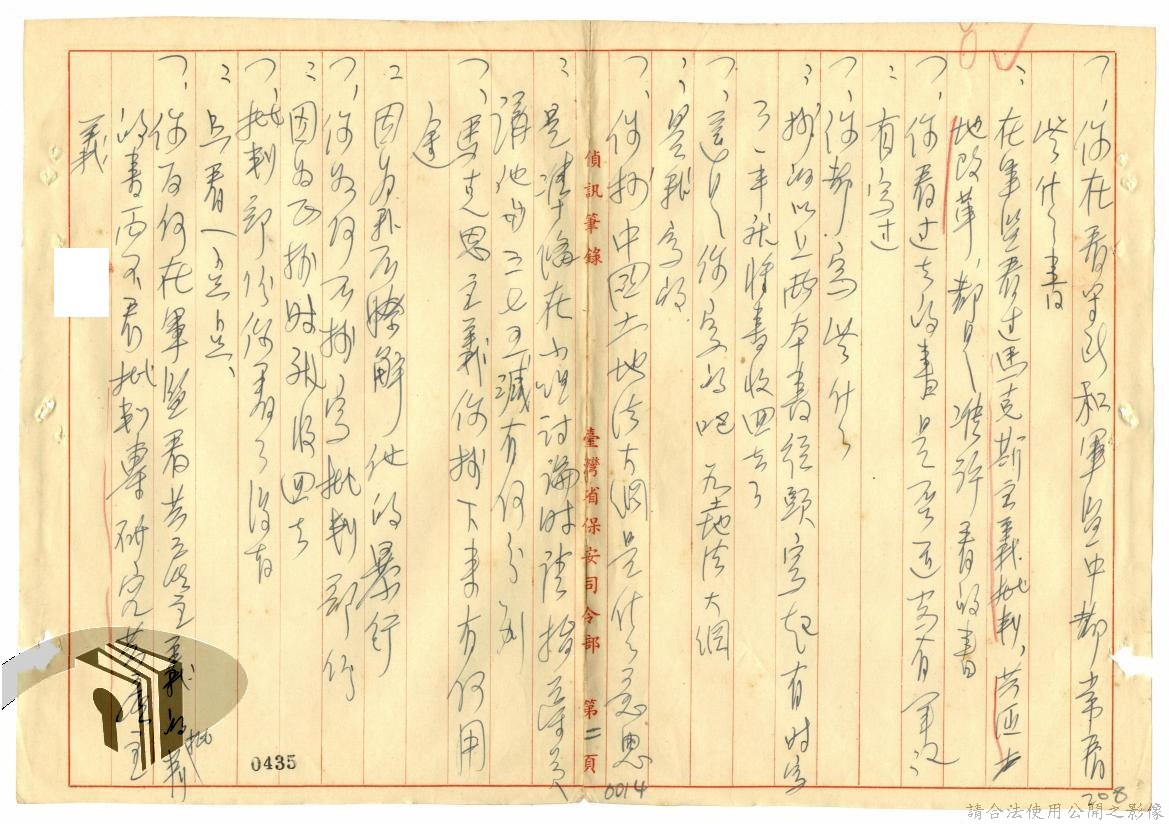 問、你在看守所和軍監中都常看
些什么書
答：在軍監看过馬克斯主義批判，共匪土
地改革，都是准許看的書
問、你看过去的書是否还寫有筆记
答：有寫过
問、你都寫些什么
答：抄的以上兩本書從頭寫起有时寫
了一半就將書收回去了
問、這是你寫的吧 土地法大綱
答：是我寫的
問、你抄中國土地法大綱是什么意思
答：是准備在小組討論时請指導員
講他的三七五減有何分別
問、馬克思主義你抄下来有何用
途
答：因為我不瞭解他的暴行
問、你為何不抄寫批判部份
答：因為正抄时就收回去
問、批判部份你看了没有
答：只看一点点、
問、你為何在軍監看共產主義的批判
的書而不看批判專研究共產主
義
偵訊筆錄
臺灣省保安司令部
第二頁
0435
0014
208
請合法使用公開之影像